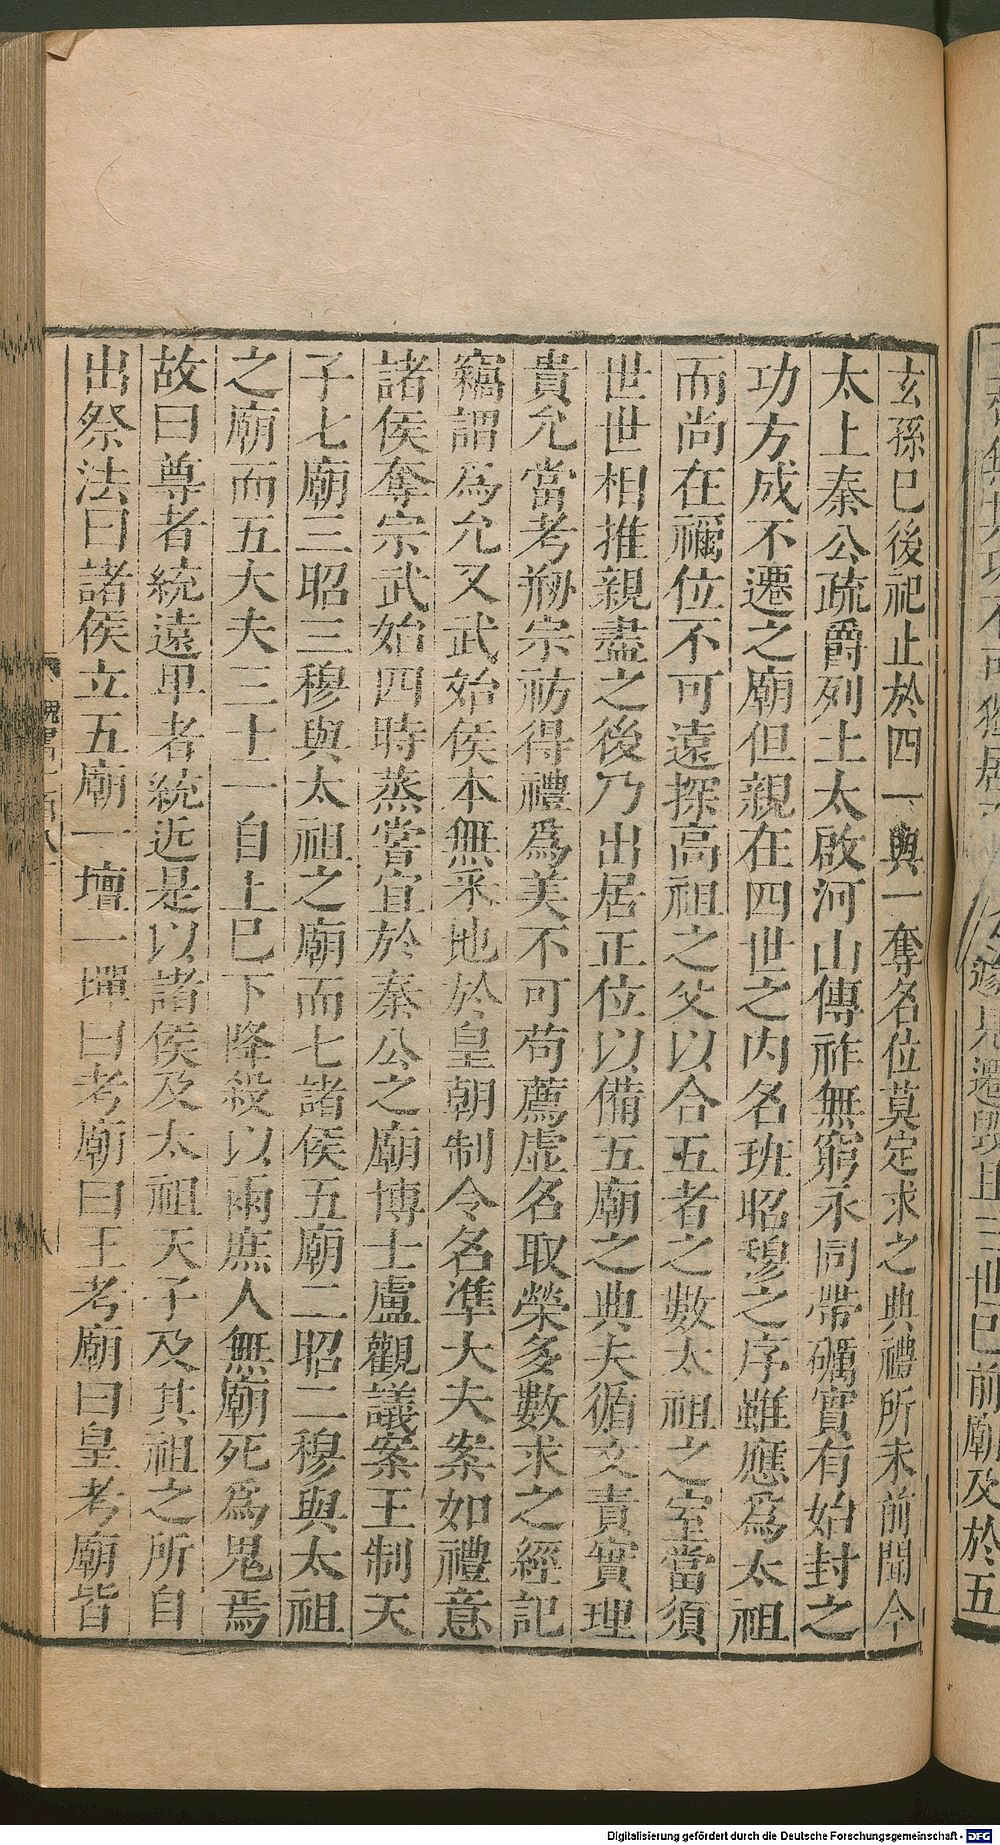 玄孫巳後祀止於四一與一奪名位莫定求之典禮所未前聞今
太上秦公疏爵列土太啟河山傳祚無窮永同帶礪實有始封之
功方成不遷之廟但親在四世之內名班昭穆之序雖應爲太祖
而尚在禰位不可遠探高祖之父以合五者之數太祖之室當須
世世相推親盡之後乃出居正位以備五廟之典夫循文責實理
貴允當考刱宗祊得禮爲美不可苟薦虛名取榮多數求之經記
竊謂爲允又武始侯本無采地於皇朝制令名準大夫案如禮意
諸侯奪宗武始四時蒸嘗宜於秦公之廟博士盧觀議案王制天
子七廟三昭三穆與太祖之廟而七諸侯五廟二昭二穆與太祖
之廟而五大夫三士一自上巳下降殺以兩庶人無廟死爲鬼焉
故曰尊者統遠卑者統近是以諸侯及太祖天子及其祖之所自
出祭法曰諸侯立五廟一壇一墠曰考廟曰王考廟曰皇考廟皆
遂見遷毀且三世巳前廟及於五
Digitalisierung gefördert durch die Deutsche Forschungsgemeinschaft - DFG